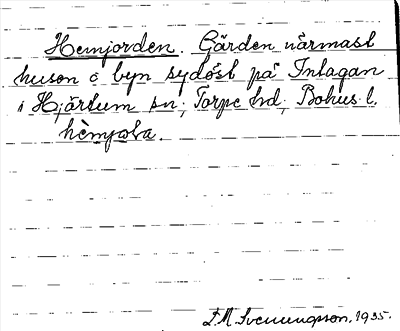 Hemjorden. Gärden närmast
husen o byn sydöst på Intagan
i Hjärtum sn; Torpe hd; Bohus l.
hèmjoḷa.
F.M. Svenungsson. 1935.